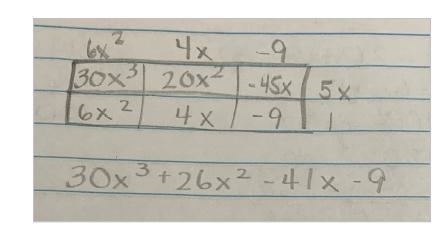 6x² 4x -9
30x³ 20x² -45x 5x
6x² 4x -9 1
30x³+26x²-41x-9